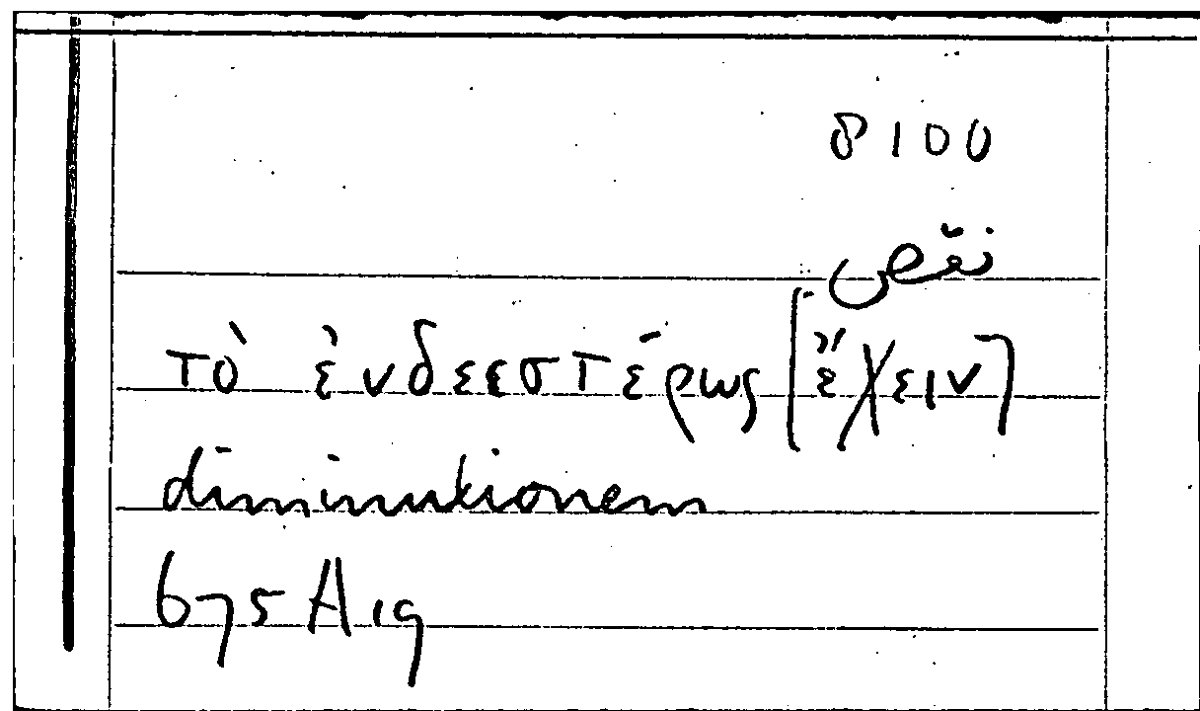 8100
نقص
τὸ ἐνδεεστέρως [ἔχειν]
diminutionem
675 A 19